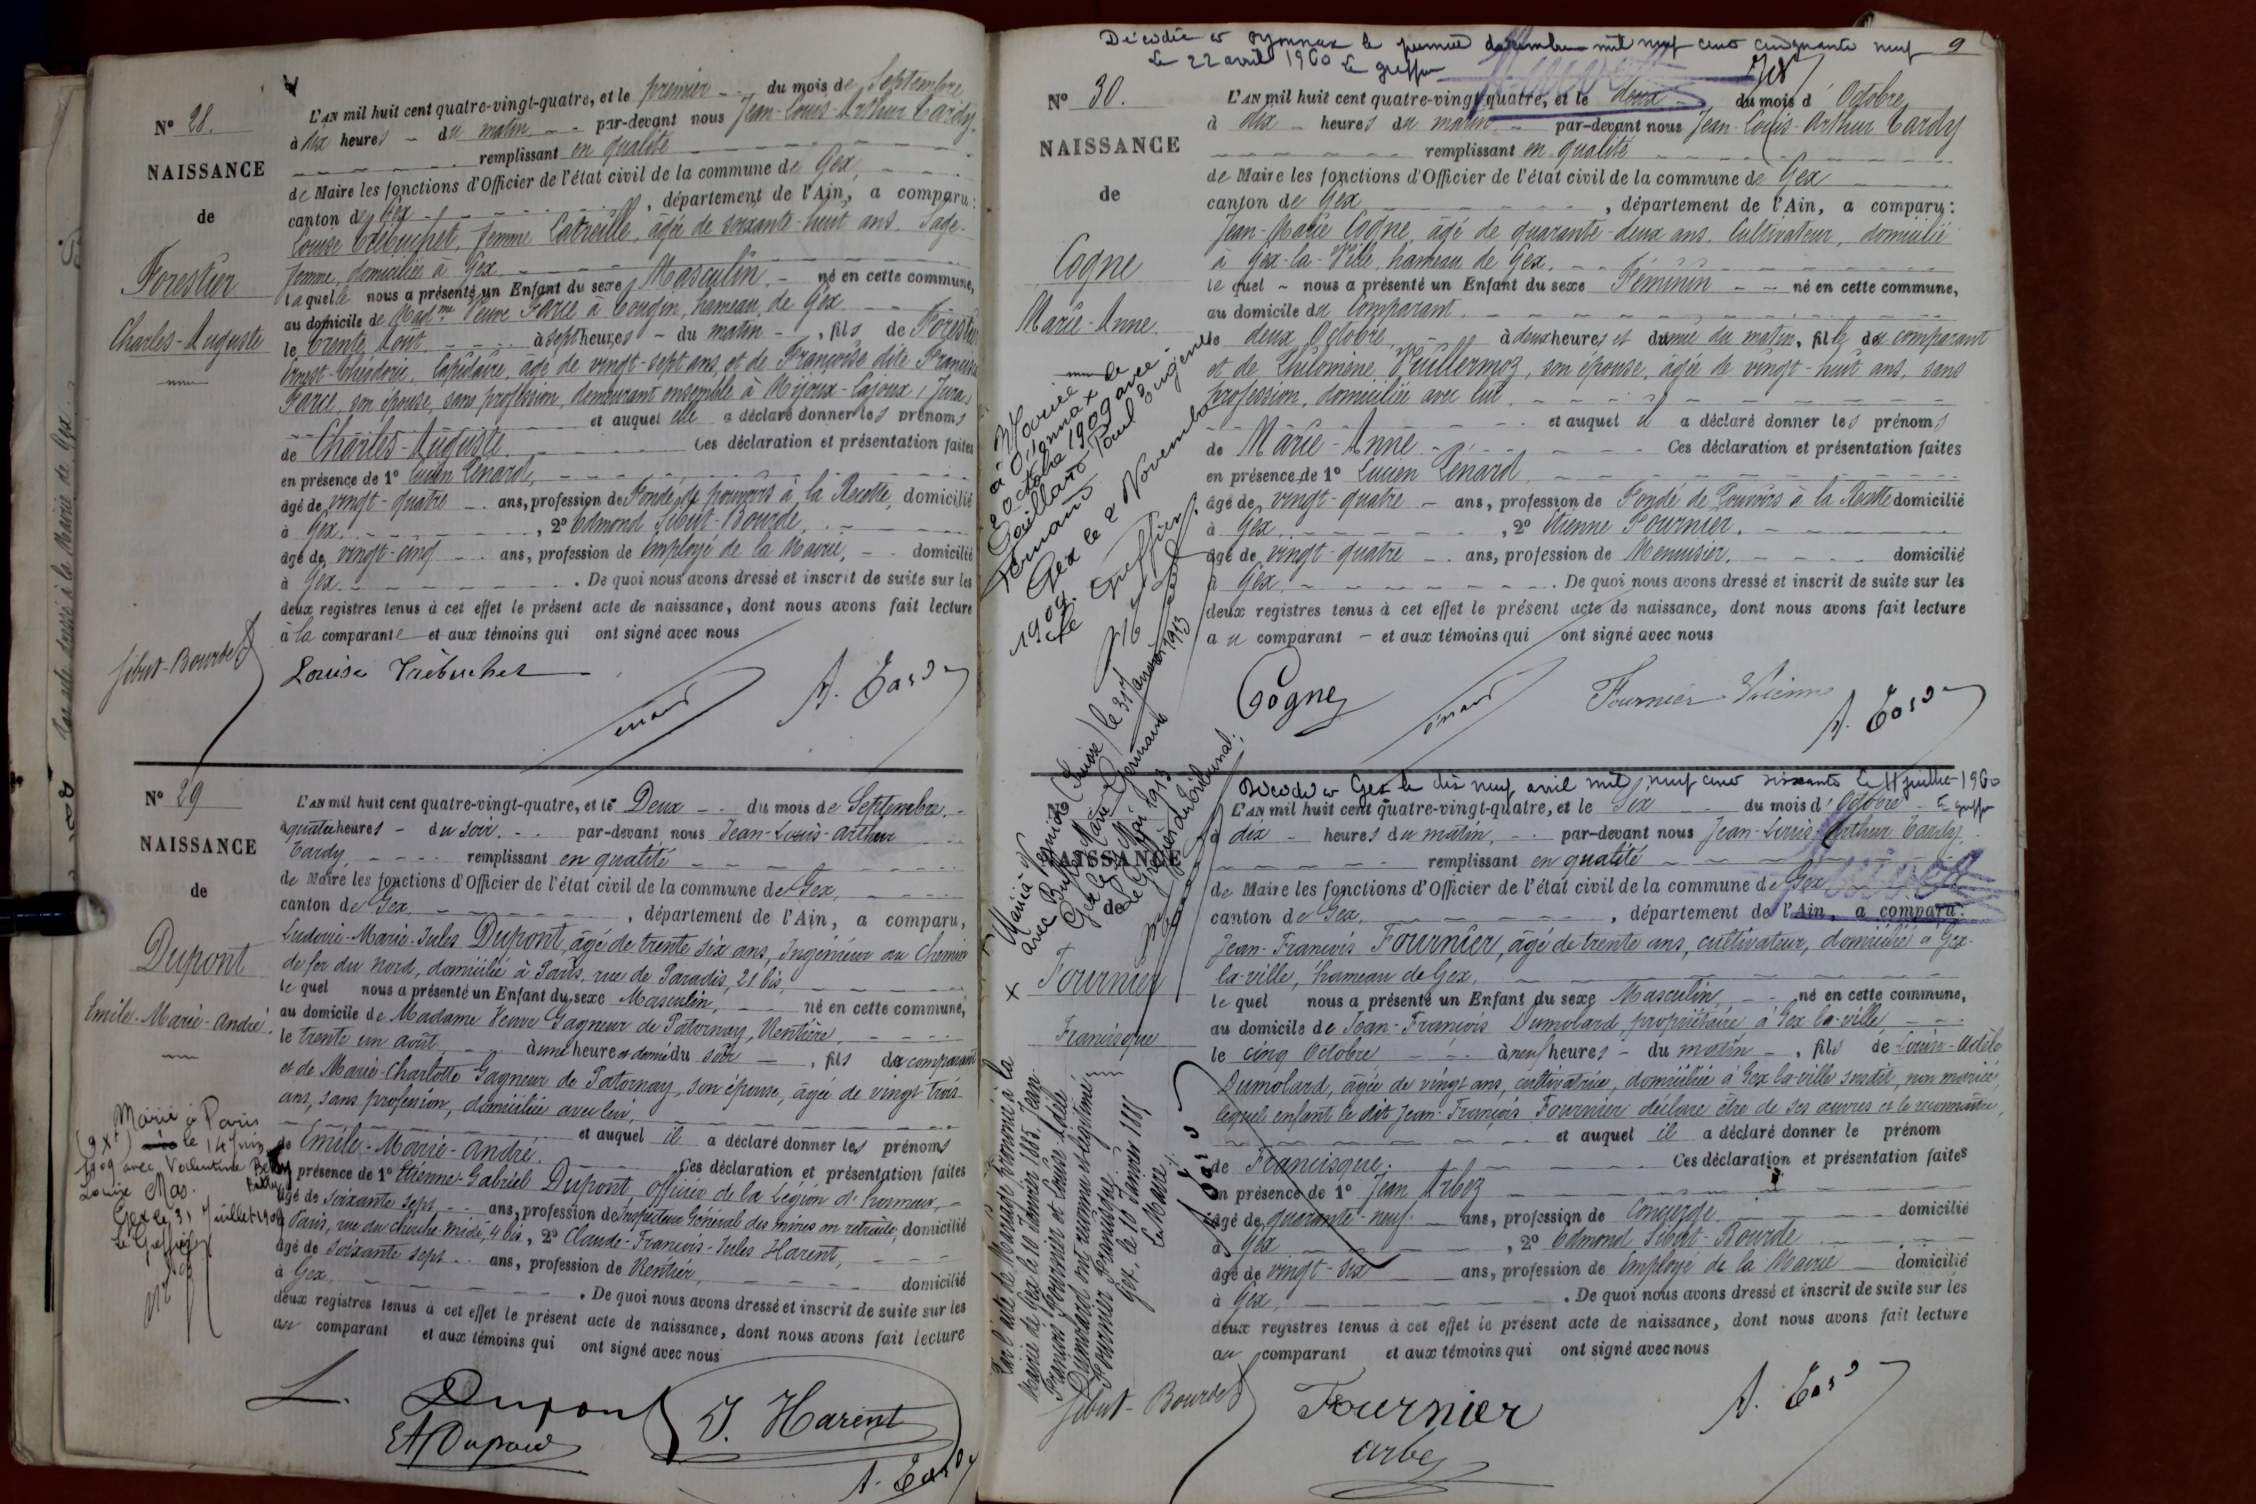 N° 28.
NAISSANCE
de
Forestier
Charles-Auguste
L'AN mil huit cent quatre-vingt-quatre, et le premier du mois de Septembre
à dix heures du matin par-devant nous Jean-Louis-Arthur Tardy,
remplissant en qualité
de Maire les fonctions d'Officier de l'état civil de la commune de Gex,
canton de Gex, département de l'Ain, a comparu:
Louise Trébuchet, femme Latreille, âgée de soixante-huit ans, Sage-
femme, domiciliée à Gex
laquelle nous a présenté un Enfant du sexe Masculin né en cette commune,
au domicile de Mad.me Veuve Farce à Tougin, hameau de Gex
le trente Aout à sept heures du matin, fils de Forestier
Ernest-Théodore, lapidaire, âgé de vingt-sept ans, et de Françoise dite Francisca
Farce, son épouse, sans profession, demeurant ensemble à Mijoux-Lajoux (Jura)
et auquel elle a déclaré donner les prénoms
de Charles-Auguste. Ces déclaration et présentation faites
en présence de 1° Lucien Lénard,
âgé de vingt-quatre ans, profession de Fondé de pouvoirs à la Recette, domicilié
à Gex, 2° Edmond Sibut-Bourde,
âgé de vingt-cinq ans, profession de Employé de la Mairie, domicilié
à Gex. De quoi nous avons dressé et inscrit de suite sur les
deux registres tenus à cet effet le présent acte de naissance, dont nous avons fait lecture
à la comparante et aux témoins qui ont signé avec nous
Sibut-Bourde Louise Trébuchet A. Tardy
N° 29
NAISSANCE
de
Dupont
Emile-Marie-André.
Marié à Paris
(9 Xt) le 14 Juin
1909 avec Valentine
Louise Mas.
Gex le 31 Juillet 1909
Le Greffier
L'AN mil huit cent quatre-vingt-quatre, et le Deux du mois de Septembre.
à quatre heures du soir par-devant nous Jean-Louis-Arthur
Tardy, remplissant en qualité
de Maire les fonctions d'Officier de l'état civil de la commune de Gex,
canton de Gex, département de l'Ain, a comparu,
Ludovic-Marie-Jules Dupont, âgé de trente six ans, Ingénieur au Chemin
de fer du Nord, domicilié à Paris, rue de Paradis, 21 bis,
lequel nous a présenté un Enfant du sexe Masculin, né en cette commune,
au domicile de Madame Veuve Gagneur de Patornay, Rentière,
le trente un août à une heure et demie du soir, fils du comparant
et de Marie-Charlotte Gagneur de Patornay, son épouse, âgée de vingt trois
ans, sans profession, domiciliée avec lui,
et auquel il a déclaré donner les prénoms
de Emile-Marie-André. Ces déclaration et présentation faites
en présence de 1° Etienne-Gabriel Dupont, officier de la Légion d'honneur,
âgé de soixante sept ans, profession de Inspecteur Général des mines en retraite, domicilié
à Paris, rue du cherche-midi, 4 bis, 2° Claude-François-Jules Harent,
âgé de soixante sept ans, profession de Rentier, domicilié
à Gex. De quoi nous avons dressé et inscrit de suite sur les
deux registres tenus à cet effet le présent acte de naissance, dont nous avons fait lecture
au comparant et aux témoins qui ont signé avec nous
L. Dupont J. Harent
A. Tardy
Décédée à Oyonnax le premier décembre mil neuf cent cinquante neuf 9
Le 22 avril 1960 Le greffier
N° 30.
NAISSANCE
de
Cogne
Marie-Anne
Mariée
à Oyonnax le
20 octobre 1909 avec
Gaillard Paul Eugène
Fernand
Gex le 2 Novembre
1909.
Le Greffier
L'AN mil huit cent quatre-vingt-quatre, et le deux du mois d'Octobre
à dix heures du matin par-devant nous Jean-Louis-Arthur Tardy
remplissant en qualité
de Maire les fonctions d'Officier de l'état civil de la commune de Gex
canton de Gex, département de l'Ain, a comparu:
Jean-Marie Cogne, âgé de quarante-deux ans, Cultivateur, domicilié
à Gex-la-Ville, hameau de Gex.
lequel nous a présenté un Enfant du sexe Féminin né en cette commune,
au domicile du Comparant
le deux Octobre, à deux heures et demie du matin, fille du comparant
et de Philomène Vuillermoz, son épouse, âgée de vingt-huit ans, sans
profession, domiciliée avec lui
et auquel il a déclaré donner les prénoms
de Marie-Anne. Ces déclaration et présentation faites
en présence de 1° Lucien Lénard
âgé de vingt-quatre ans, profession de Fondé de Pouvoirs à la Recette domicilié
à Gex, 2° Etienne Fournier,
âgé de vingt-quatre ans, profession de Menuisier, domicilié
à Gex. De quoi nous avons dressé et inscrit de suite sur les
deux registres tenus à cet effet le présent acte de naissance, dont nous avons fait lecture
au comparant et aux témoins qui ont signé avec nous
Cogne Fournier Etienne A. Tardy
Décédé à Gex le dix neuf avril mil neuf cent soixante Le 11 juillet 1960
Le greffier
NAISSANCE
de
Fournier
Francisque
le 31 Janvier 1913
Gex le Mai 1913
Le Greffier du Tribunal.
Par l'acte de Mariage prononcé à la
Mairie de Gex le 10 Janvier 1885, Jean
François Fournier et Louise-Adèle
Dumolard ont reconnu et légitimé
Fournier Francisque.
Gex, le 10 Janvier 1885
Le Maire
A. Tardy
L'AN mil huit cent quatre-vingt-quatre, et le Six du mois d'Octobre
à dix heures du matin, par-devant nous Jean-Louis-Arthur Tardy,
remplissant en qualité
de Maire les fonctions d'Officier de l'état civil de la commune de Gex
canton de Gex, département de l'Ain, a comparu:
Jean-François Fournier, âgé de trente ans, cultivateur, domicilié à Gex-
la-ville, hameau de Gex,
lequel nous a présenté un Enfant du sexe Masculin, né en cette commune,
au domicile de Jean-François Dumolard propriétaire à Gex la-ville
le cinq Octobre à neuf heures du matin, fils de Louise-Adèle
Dumolard, âgée de vingt ans, cultivatrice, domiciliée à Gex la-ville susdit, non mariée,
lequel enfant le dit Jean-François Fournier déclare être de ses œuvres et le reconnaître,
et auquel il a déclaré donner le prénom
de Francisque. Ces déclaration et présentation faites
en présence de 1° Jean Arbez
âgé de quarante-neuf ans, profession de Concierge domicilié
à Gex, 2° Edmond Sibut-Bourde
âgé de vingt-six ans, profession de Employé de la Mairie domicilié
à Gex. De quoi nous avons dressé et inscrit de suite sur les
deux registres tenus à cet effet le présent acte de naissance, dont nous avons fait lecture
au comparant et aux témoins qui ont signé avec nous
Sibut-Bourde Fournier A. Tardy
Arbez